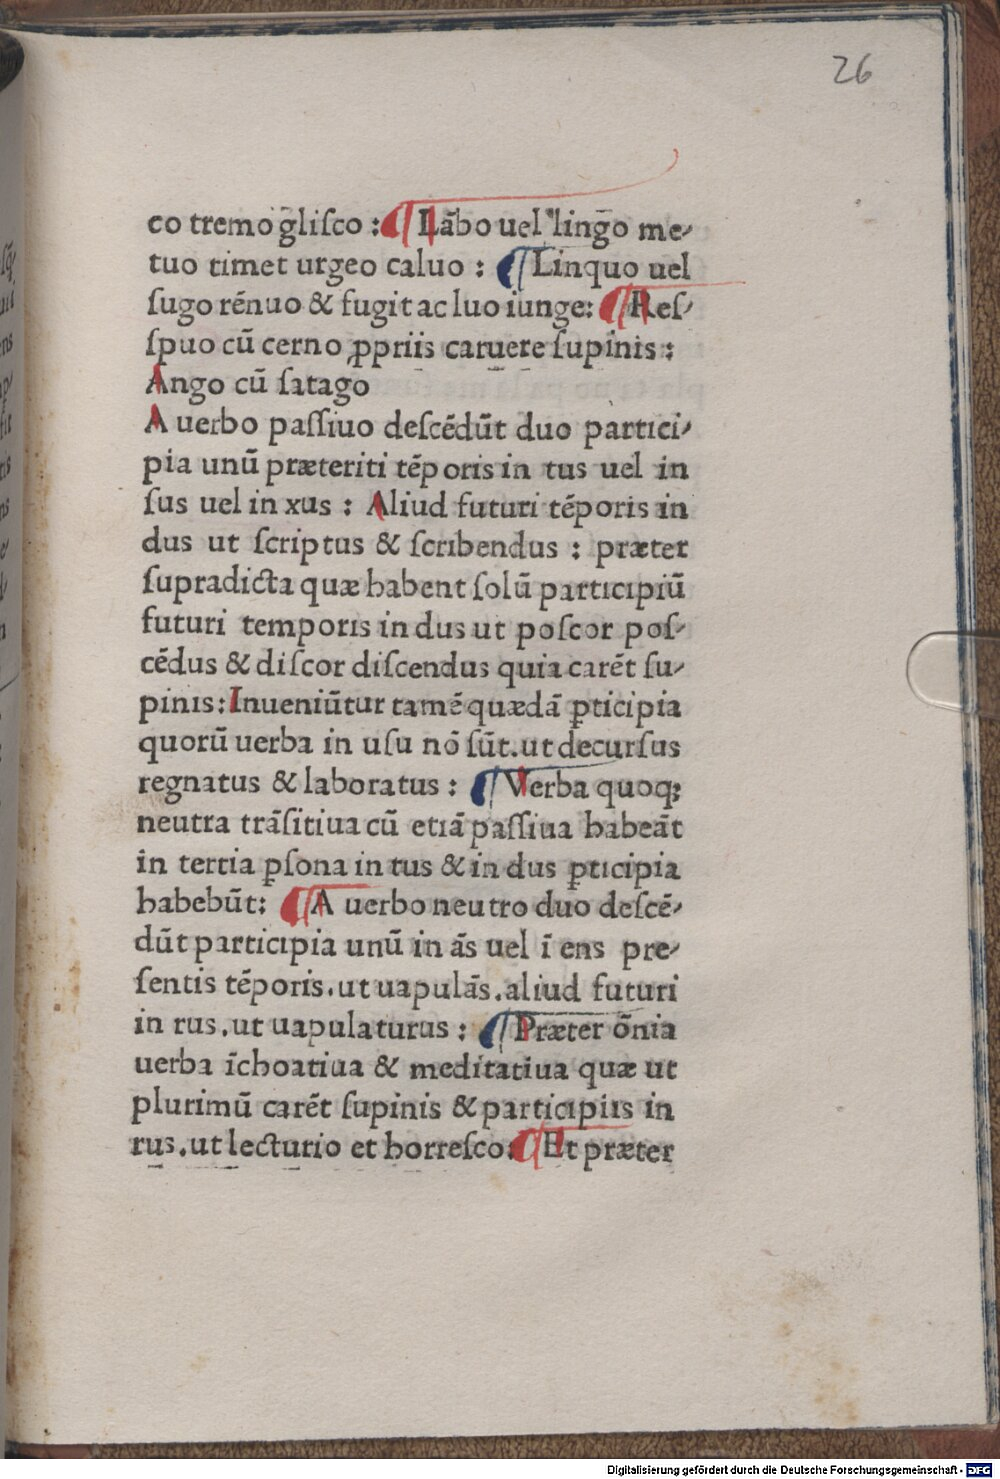 26
co tremo gliſco : ¶ Lābo uel lingo me⸗
tuo timet urgeo caluo : ¶ Linquo uel
ſugo rēnuo & fugit ac luo iunge: ¶ Reſ⸗
ſpuo cū cerno ꝓpriis caruere ſupinis :
Ango cū ſatago
A uerbo paſſiuo deſcēdūt duo partici⸗
pia unū præteriti tēporis in tus uel in
ſus uel in xus : Aliud futuri tēporis in
dus ut ſcriptus & ſcribendus : præter
ſupradicta quæ habent ſolū participiū
futuri temporis in dus ut poſcor poſ⸗
cēdus & diſcor diſcendus quia carēt ſu⸗
pinis: Inueniūtur tamē quædā ꝑticipia
quorū uerba in uſu nō ſūt. ut decurſus
regnatus & laboratus : ¶ Verba quoqꝫ
neutra trāſitiua cū etiā paſſiua habeāt
in tertia ꝑſona in tus & in dus ꝑticipia
habebūt: ¶ A uerbo neutro duo deſcē⸗
dūt participia unū in ās uel ī ens pre⸗
ſentis tēporis. ut uapulās. aliud futuri
in rus. ut uapulaturus : ¶ Præter ōnia
uerba īchoatiua & meditatiua quæ ut
plurimū carēt ſupinis & participiis in
rus. ut lecturio et horreſco: ¶ Et præter
Digitalisierung gefördert durch die Deutsche Forschungsgemeinschaft - DFG